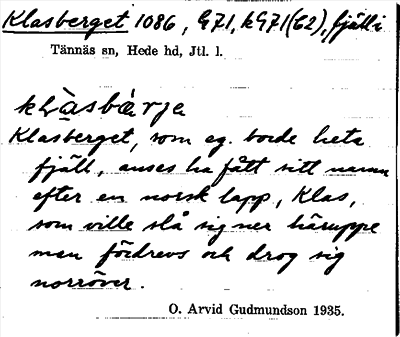 Klasberget 1086, G71, kG71(C2), fjäll i
Tännäs sn, Hede hd, Jtl. l.
Klasberget, som eg. borde heta
fjäll, anses ha fått sitt namn
efter en norsk lapp, Klas,
som ville slå sig ner häruppe
men fördrevs och drog sig
norröver.
O. Arvid Gudmundson 1935.